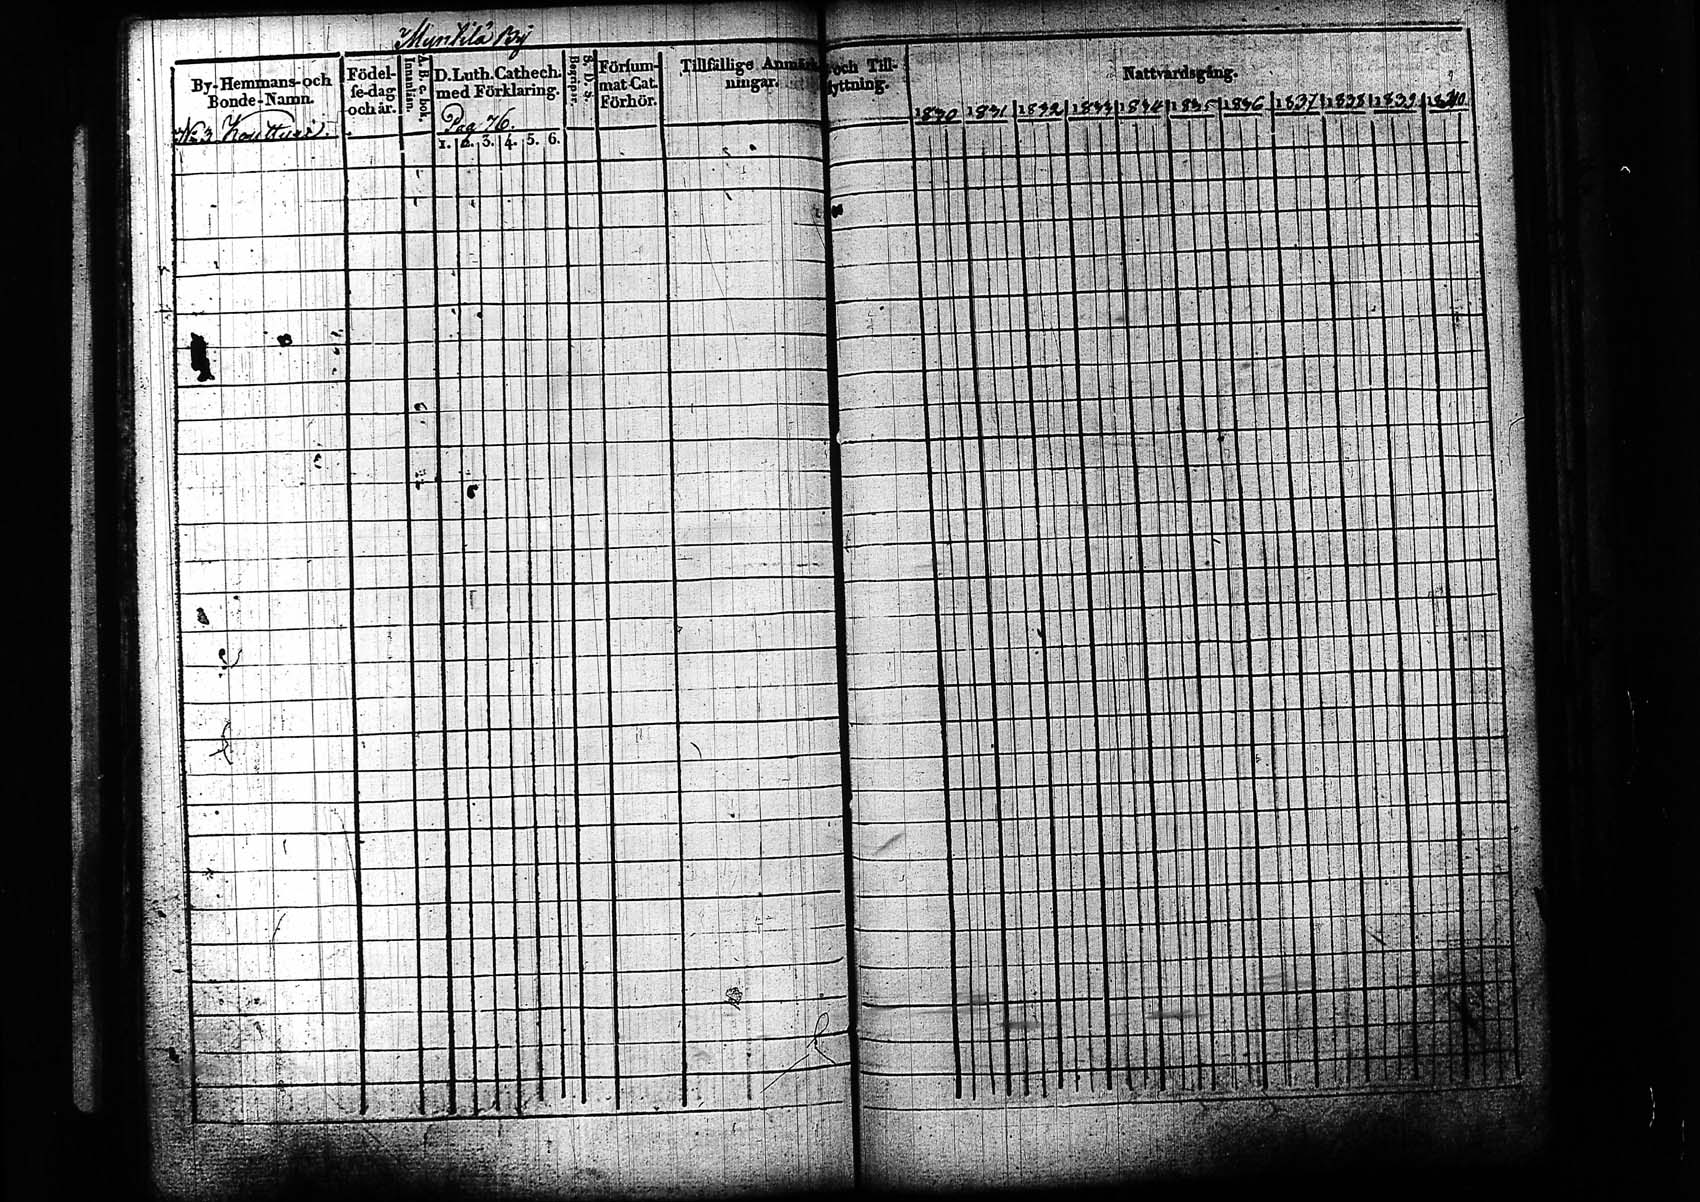 Munkila By
By-Hemmans-och
Bonde-Namn.
Födel-
se-dag
och år.
A. B. c. bok.
Innanläsn.
D. Luth. Cathech.
med Förklaring.
S. D. s.
Begriper.
Försum-
mat Cat.
Förhör.
Tillfällige Anmärk-
ningar.
och Till-
flyttning.
Nattvardsgång.
No 3
Pag 76.
1. 2. 3. 4. 5. 6.
1830 1831 1832 1833 1834 1835 1836 1837 1838 1839 1840